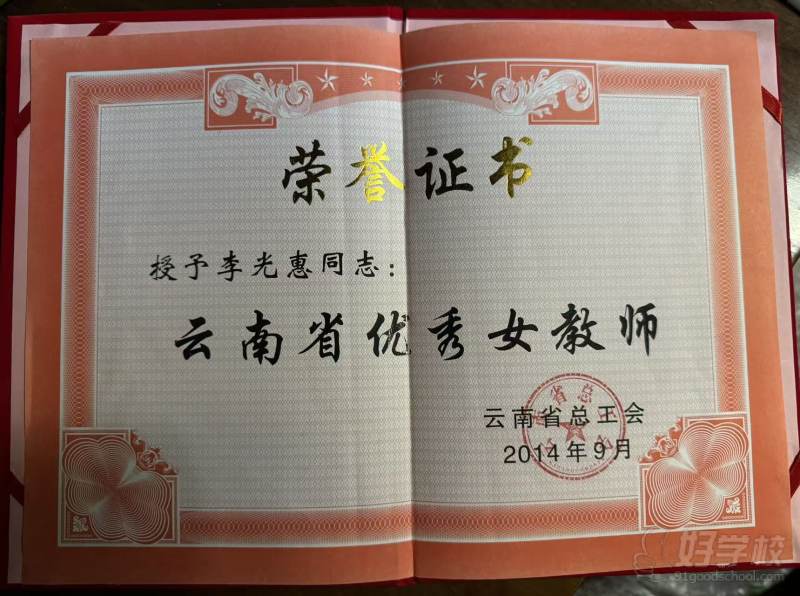 荣誉证书
授予李光惠同志：
云南省优秀女教师
云南省总工会
2014年9月
好学校
91goodschool.com